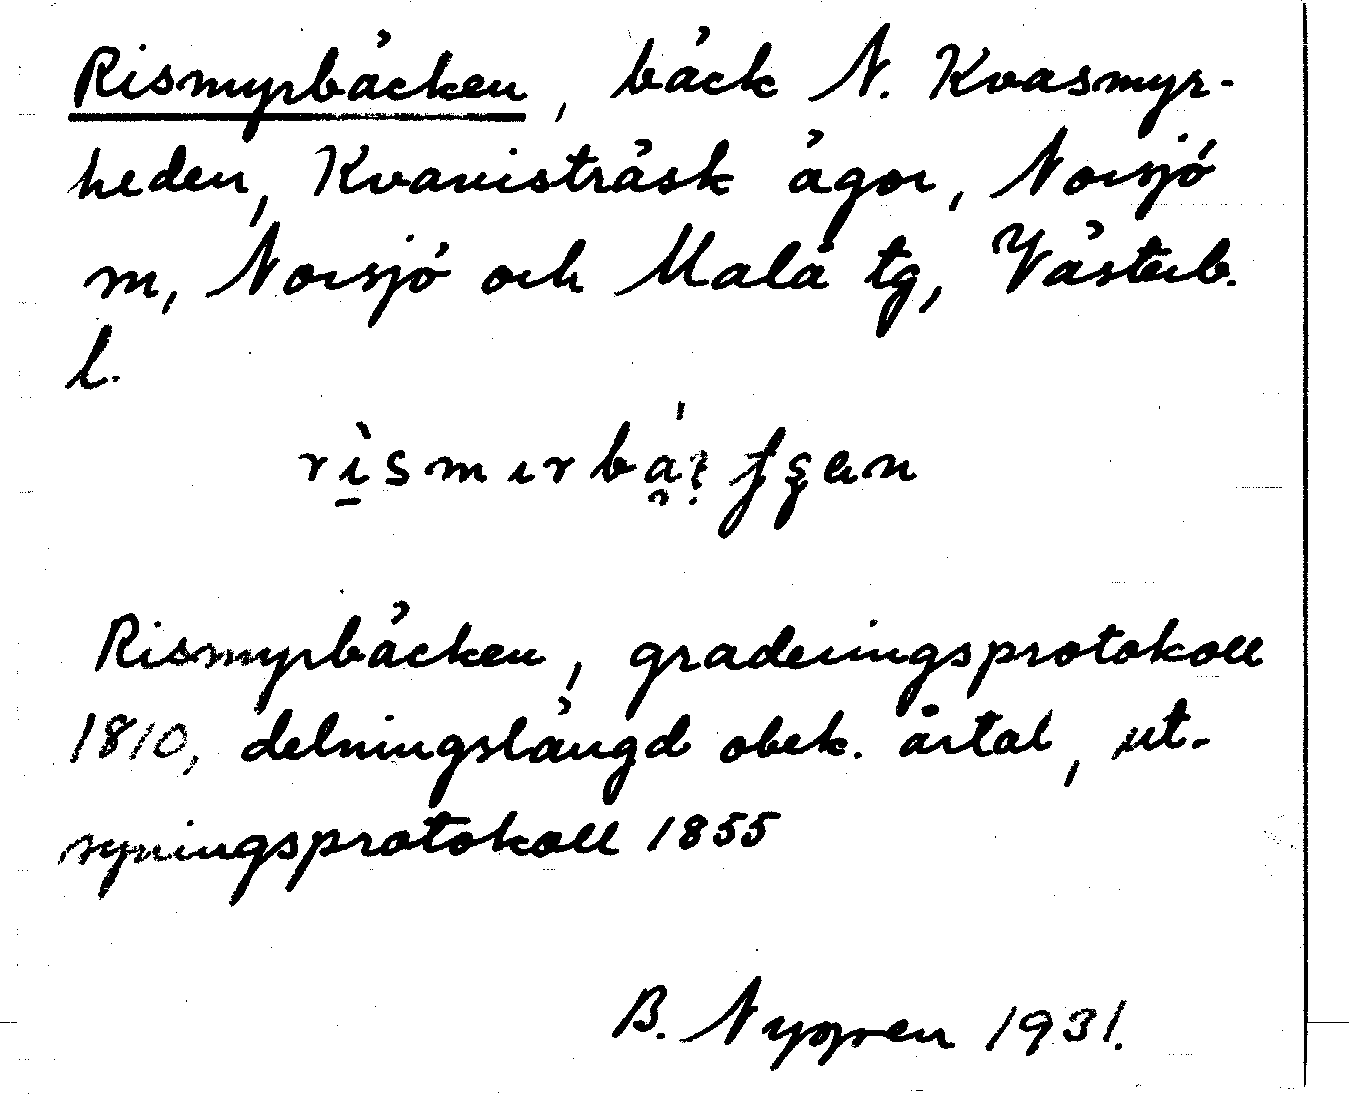 Rismyrbäcken, bäck N. Kvasmyr-
heden, Kvavisträsk ägor, Norsjö
m, Norsjö och Malå tg, Västerb.
l.
Rismyrbäcken, graderingsprotokoll
1810, delningslängd obek. årtal, ut-
syningsprotokoll 1855
B. Nygren 1931.